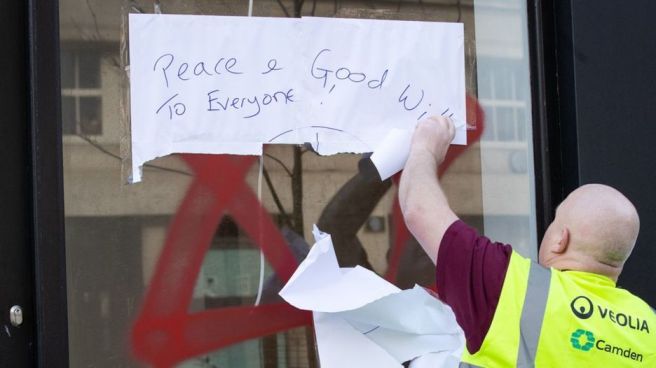 Peace & Good Will
To Everyone!
VEOLIA
Camden